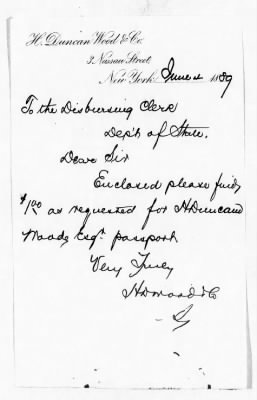 H. Duncan Wood & Co.
3, Nassau Street,
New York, June 4 1889
To the Disbursing Clerk
Dep't of State,
Dear Sir
Enclosed please find
$1.00 as requested for H Duncan
Woods Esqr. passport
Very Truly
H D Wood & Co